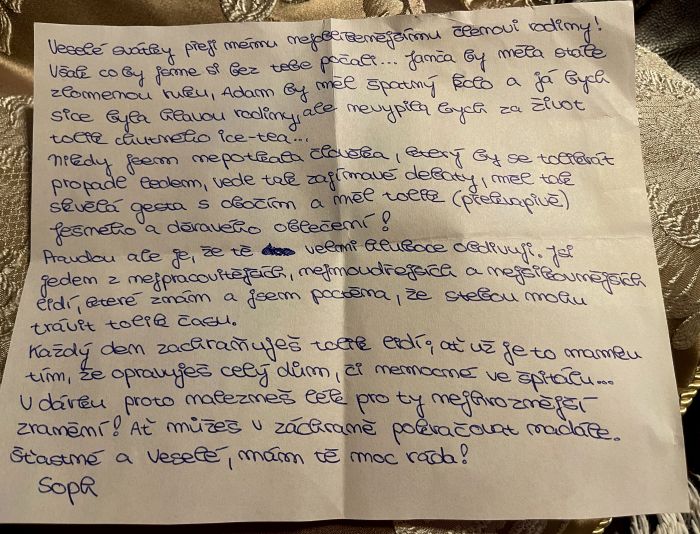 Veselé svátky přeji mému nejoblíbenějšímu členovi rodiny!
Však co by jsme si bez tebe počali... Janča by měla stále
zlomenou ruku, Adam by měl špatný kolo a já bych
sice byla hlavou rodiny, ale nevypila bych za život
tolik chutného ice-tea...
Nikdy jsem nepotkala člověka, který by se tolikrát
propadl ledem, vede tak zajímavé debaty, měl tak
skvělá gesta s obočím a měl tolik (překvapivě)
fešného a děravého oblečení!
Pravdou ale je, že tě velmi hluboce obdivuji. Jsi
jedem z nejpracovitějších, nejmoudřejších a nejšikovnějších
lidí, které znám a jsem poctěna, že s tebou mohu
trávit tolik času.
Každý den zachraňuješ tolik lidí; ať už je to mamku
tím, že opravuješ celý dům, či nemocné ve špitálu...
V dárku proto nalezneš lék pro ty nejhroznější
zranění! Ať můžeš v záchraně pokračovat nadále.
Šťastné a veselé, mám tě moc ráda!
Soph